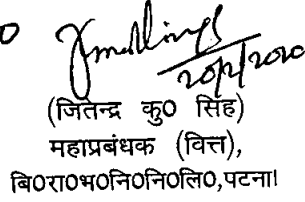 (जितेन्द्र कु0 सिंह)
महाप्रबंधक (वित्त),
बि0रा0भ0नि0नि0लि0,पटना।